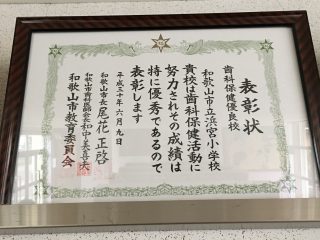 表彰状
歯科保健優良校
和歌山市立浜宮小学校
貴校は歯科保健活動に
努力されその成績は
特に優秀であるので
表彰します
平成三十年六月九日
和歌山市長 尾花正啓
和歌山市歯科医師会長 中喜夫
和歌山市教育委員会